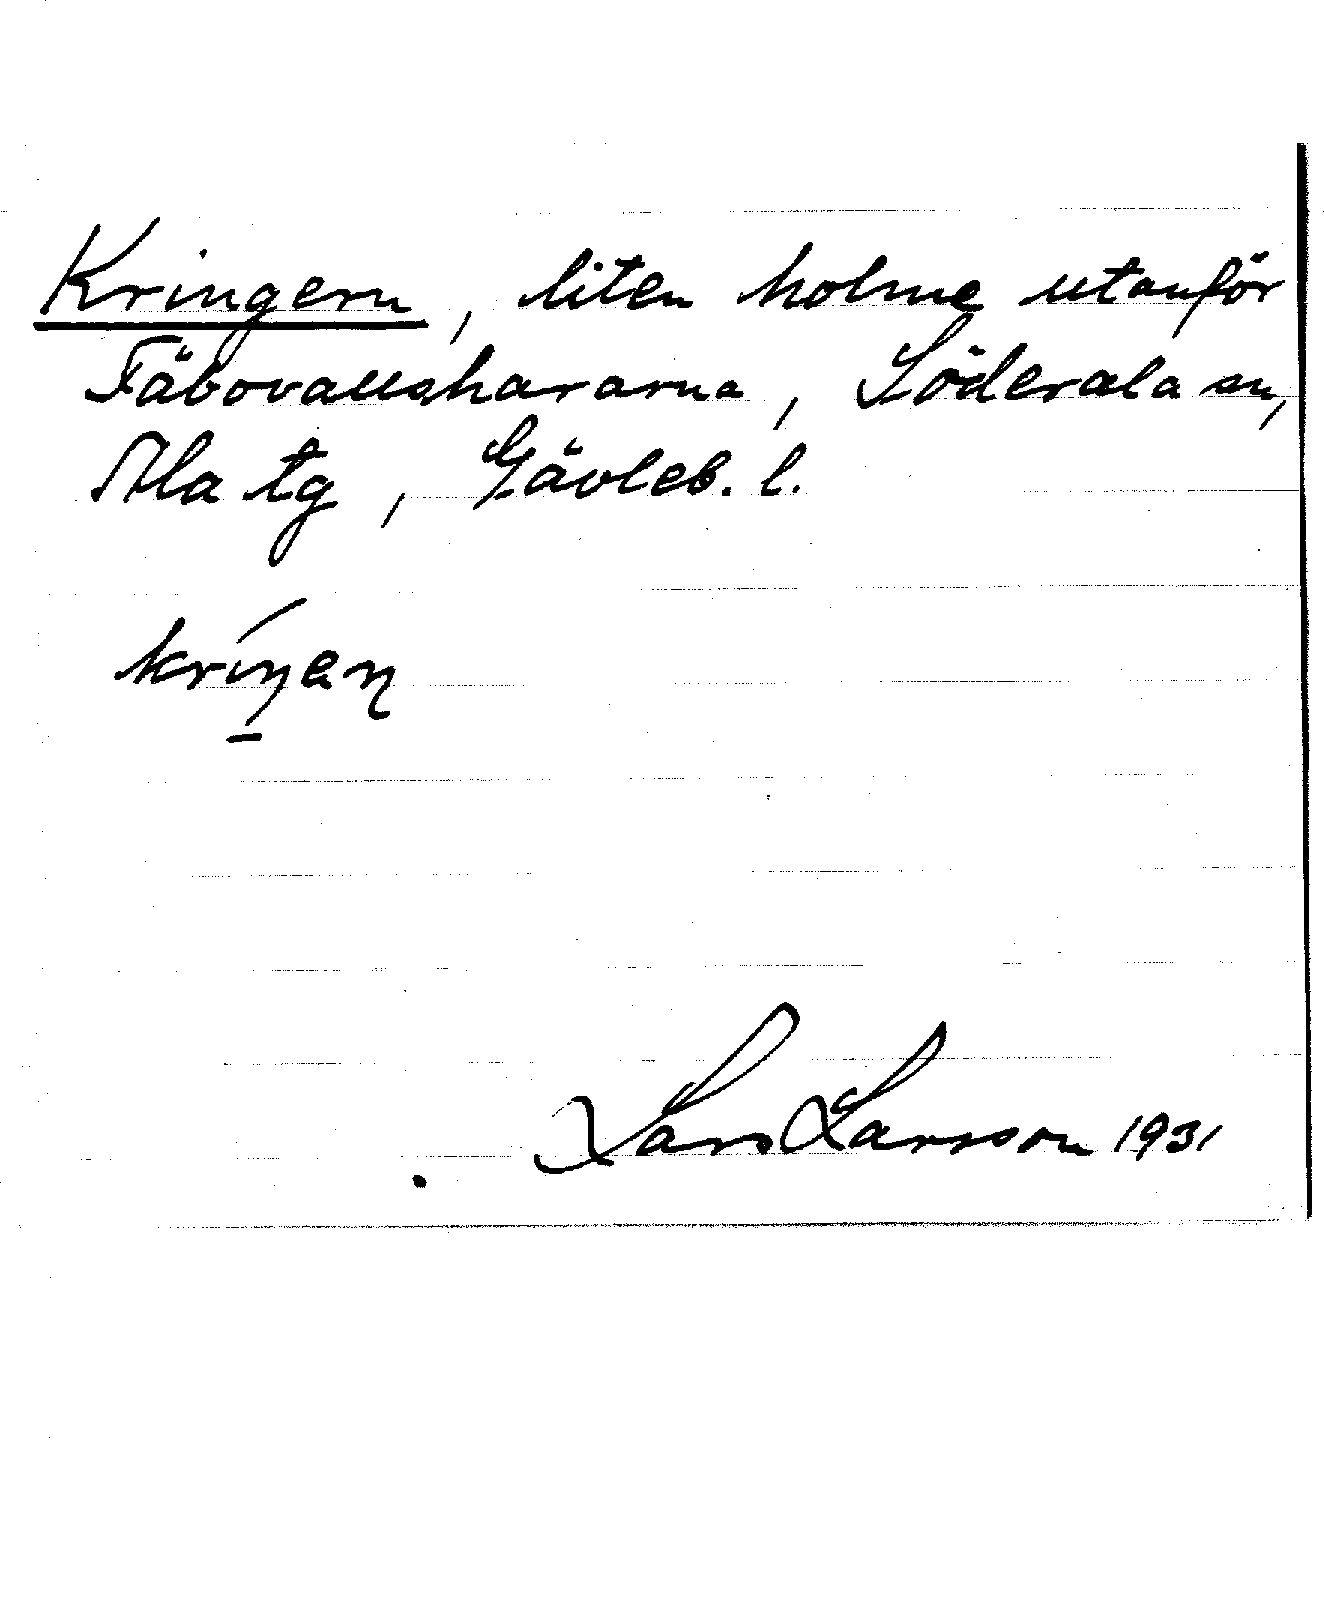 Kringern, liten holme utanför
Fäbovallshararna, Söderala sn,
Ala tg, Gävleb. l.
kríŋaɳ
Lars Larsson 1931